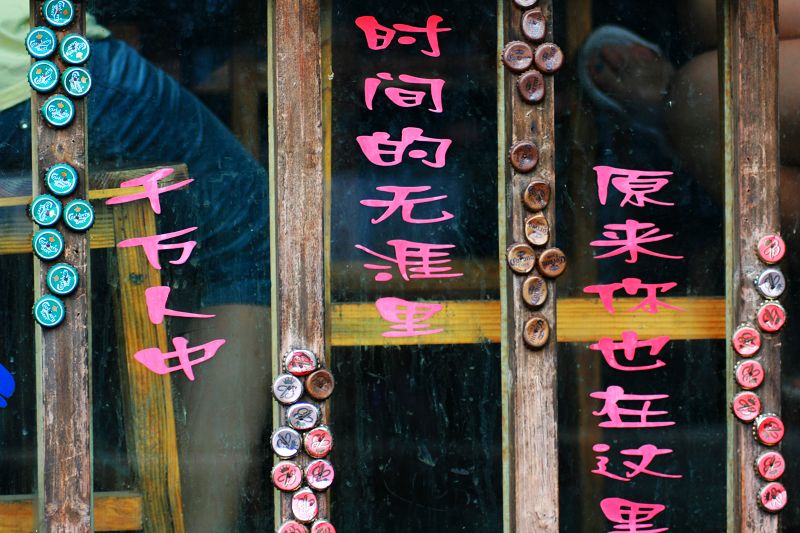 千万人中
时间的无涯里
原来你也在这里